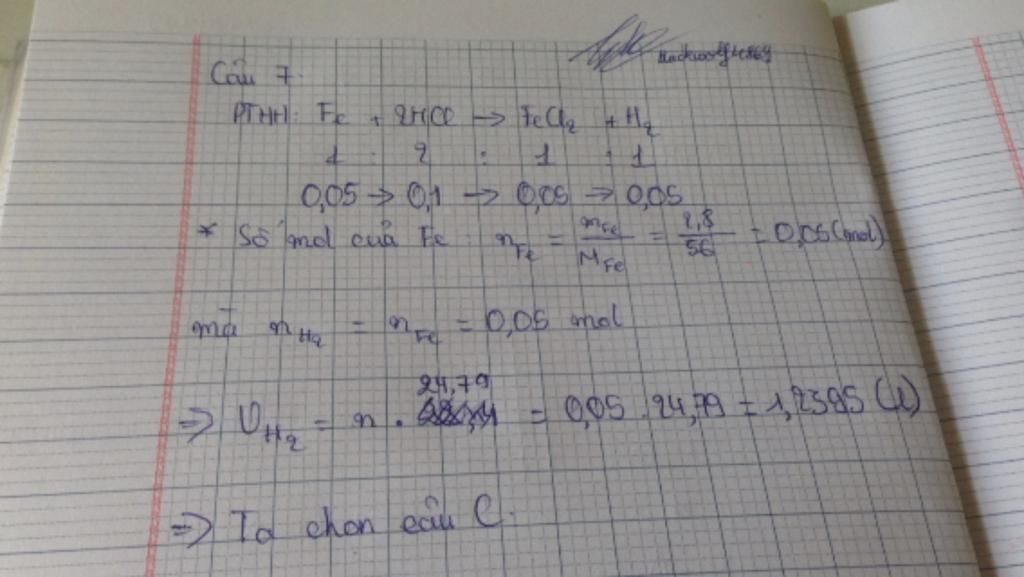 Câu 7.
PTHH: Fe + 2HCl → FeCl2 + H2
1 : 2 : 1 : 1
0,05 → 0,1 → 0,05 → 0,05
* Số mol của Fe: nFe = mFe/MFe = 2,8/56 = 0,05 (mol)
mà nH2 = nFe = 0,05 mol
⇒ VH2 = n . 24,79 = 0,05 . 24,79 = 1,2395 (l)
⇒ Ta chọn câu C.